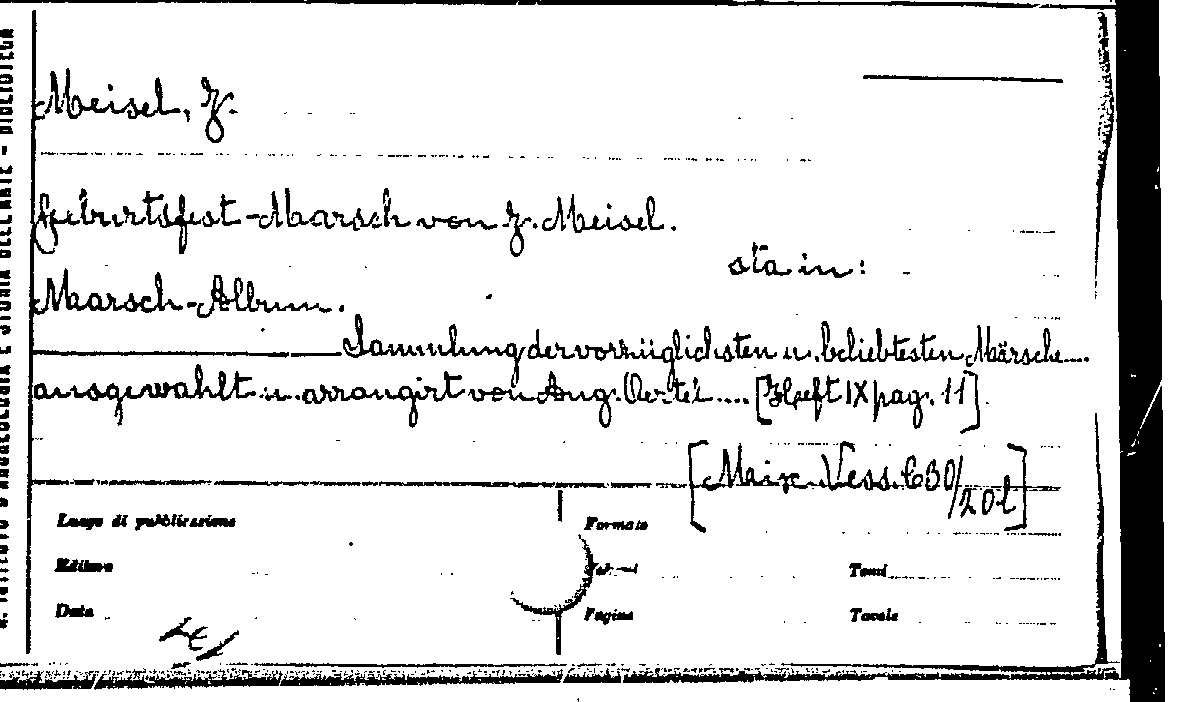 R. ISTITUTO D'ARCHEOLOGIA E STORIA DELL'ARTE - BIBLIOTECA
Meisel, F.
Geburtsfest-Marsch von F. Meisel.
sta in:
Marsch-Album.
Sammlung der vorzüglichsten u. beliebtesten Märsche....
ausgewahlt u. arrangirt von Aug. Oertel.... [Heft IX pag. 11]
[Mairx. Vess. C30/20 l]
Luogo di pubblicazione
Formato
Editore
Volumi
Tomi
Data
Pagine
Tavole